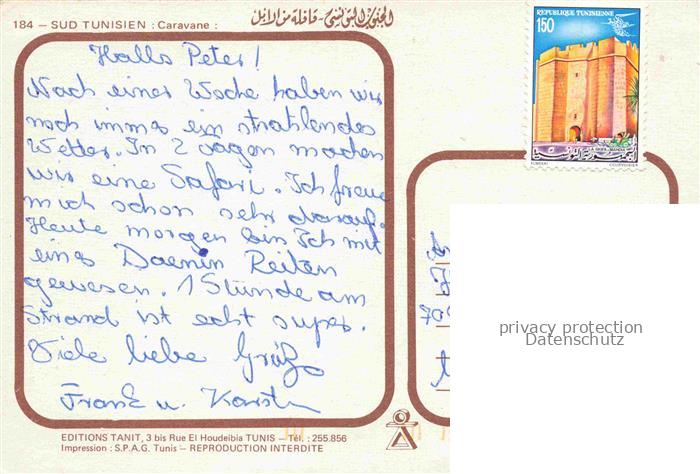 184 – SUD TUNISIEN : Caravane :
الجنوب التونسي - قافلة من الابل
REPUBLIQUE TUNISIENNE
150
Hallo Peter!
Nach einer Woche haben wir
noch immer ein strahlendes
Wetter. In 2 Tagen machen
wir eine Safari. Ich freue
mich schon sehr darauf.
Heute morgen bin Ich mit
einer Daenin Reiten
gewesen. 1 Stunde am
Strand ist echt super.
Viele liebe Grüße
Frank u. Karsten
privacy protection
Datenschutz
EDITIONS TANIT, 3 bis Rue El Houdeibia TUNIS – Tél. : 255.856
Impression : S.P.A.G. Tunis – REPRODUCTION INTERDITE